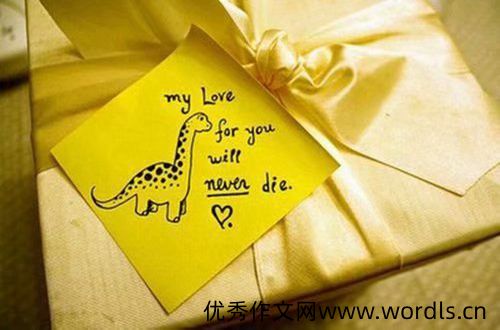 my Love
for you
will
never die.
优秀作文网www.wordls.cn